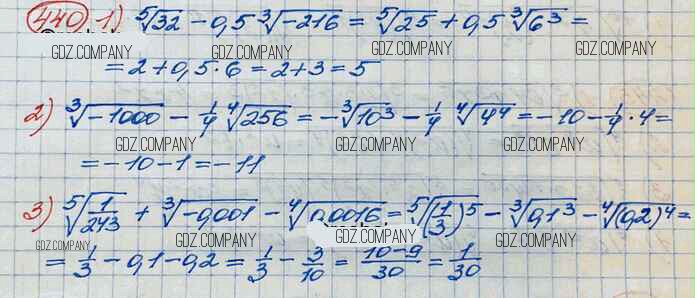 440 1) ⁵√32 - 0,5 ³√-216 = ⁵√25 + 0,5 ³√6³ =
GDZ.COMPANY GDZ.COMPANY GDZ.COMPANY GDZ.COMPANY
= 2 + 0,5 · 6 = 2 + 3 = 5
2) ³√-1000 - 1/4 ⁴√256 = - ³√10³ - 1/4 ⁴√4⁴ = -10 - 1/4 · 4 =
GDZ.COMPANY GDZ.COMPANY GDZ.COMPANY
= -10 - 1 = -11
3) ⁵√1/243 + ³√-0,001 - ⁴√0,0016 = ⁵√(1/3)⁵ - ³√0,1³ - ⁴√(0,2)⁴ =
GDZ.COMPANY GDZ.COMPANY GDZ.COMPANY GDZ.COMPANY
= 1/3 - 0,1 - 0,2 = 1/3 - 3/10 = 10-9/30 = 1/30